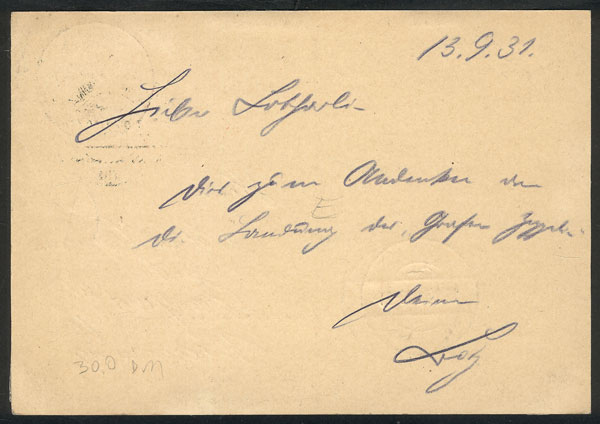 13.9.31.
Lieber Lotharli-
Dies zum Andenken an
die Landung des "Grafen Zeppelin"
E
Deine
30,0 DM